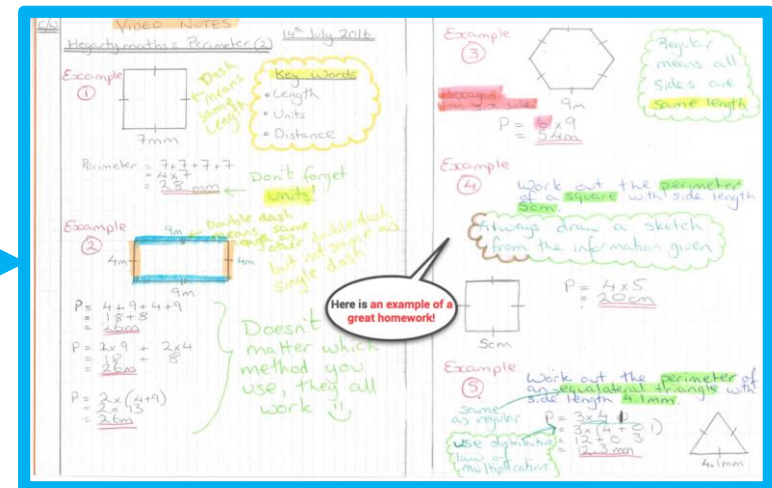 C/W
VIDEO NOTES
14th July 2016
Hegartymaths: Perimeter (2)
Example
1
Dash
means
same
length
7mm
Key Words
• Length
• Units
• Distance
Perimeter = 7+7+7+7
= 4 x 7
= 28 mm
Don't forget
units!
Example
2
9m
4m
4m
9m
Double dash
means same
as each other
double dash
but not same as
single dash
P = 4 + 9 + 4 + 9
= 18 + 8
= 26m
P = 2x9 + 2x4
= 18 + 8
= 26m
P = 2 x (4+9)
= 2 x 13
= 26m
Doesn't
matter which
method you
use, they all
work
Here is an example of a
great homework!
Example
3
9m
Regular
means all
sides are
same length
hexagon
has six sides
P = 6 x 9
= 54m
Example
4
Work out the perimeter
of a square with side length
5cm.
Always draw a sketch
from the information given
5cm
P = 4 x 5
= 20cm
Example
5
Work out the perimeter of
an equalateral triangle with
side length 4.1mm.
same
as regular
use distributive
law of
multiplication
P = 3 x 4
= 3 x (4 + 0.1)
= 12 + 0.3
= 12.3 mm
4.1mm